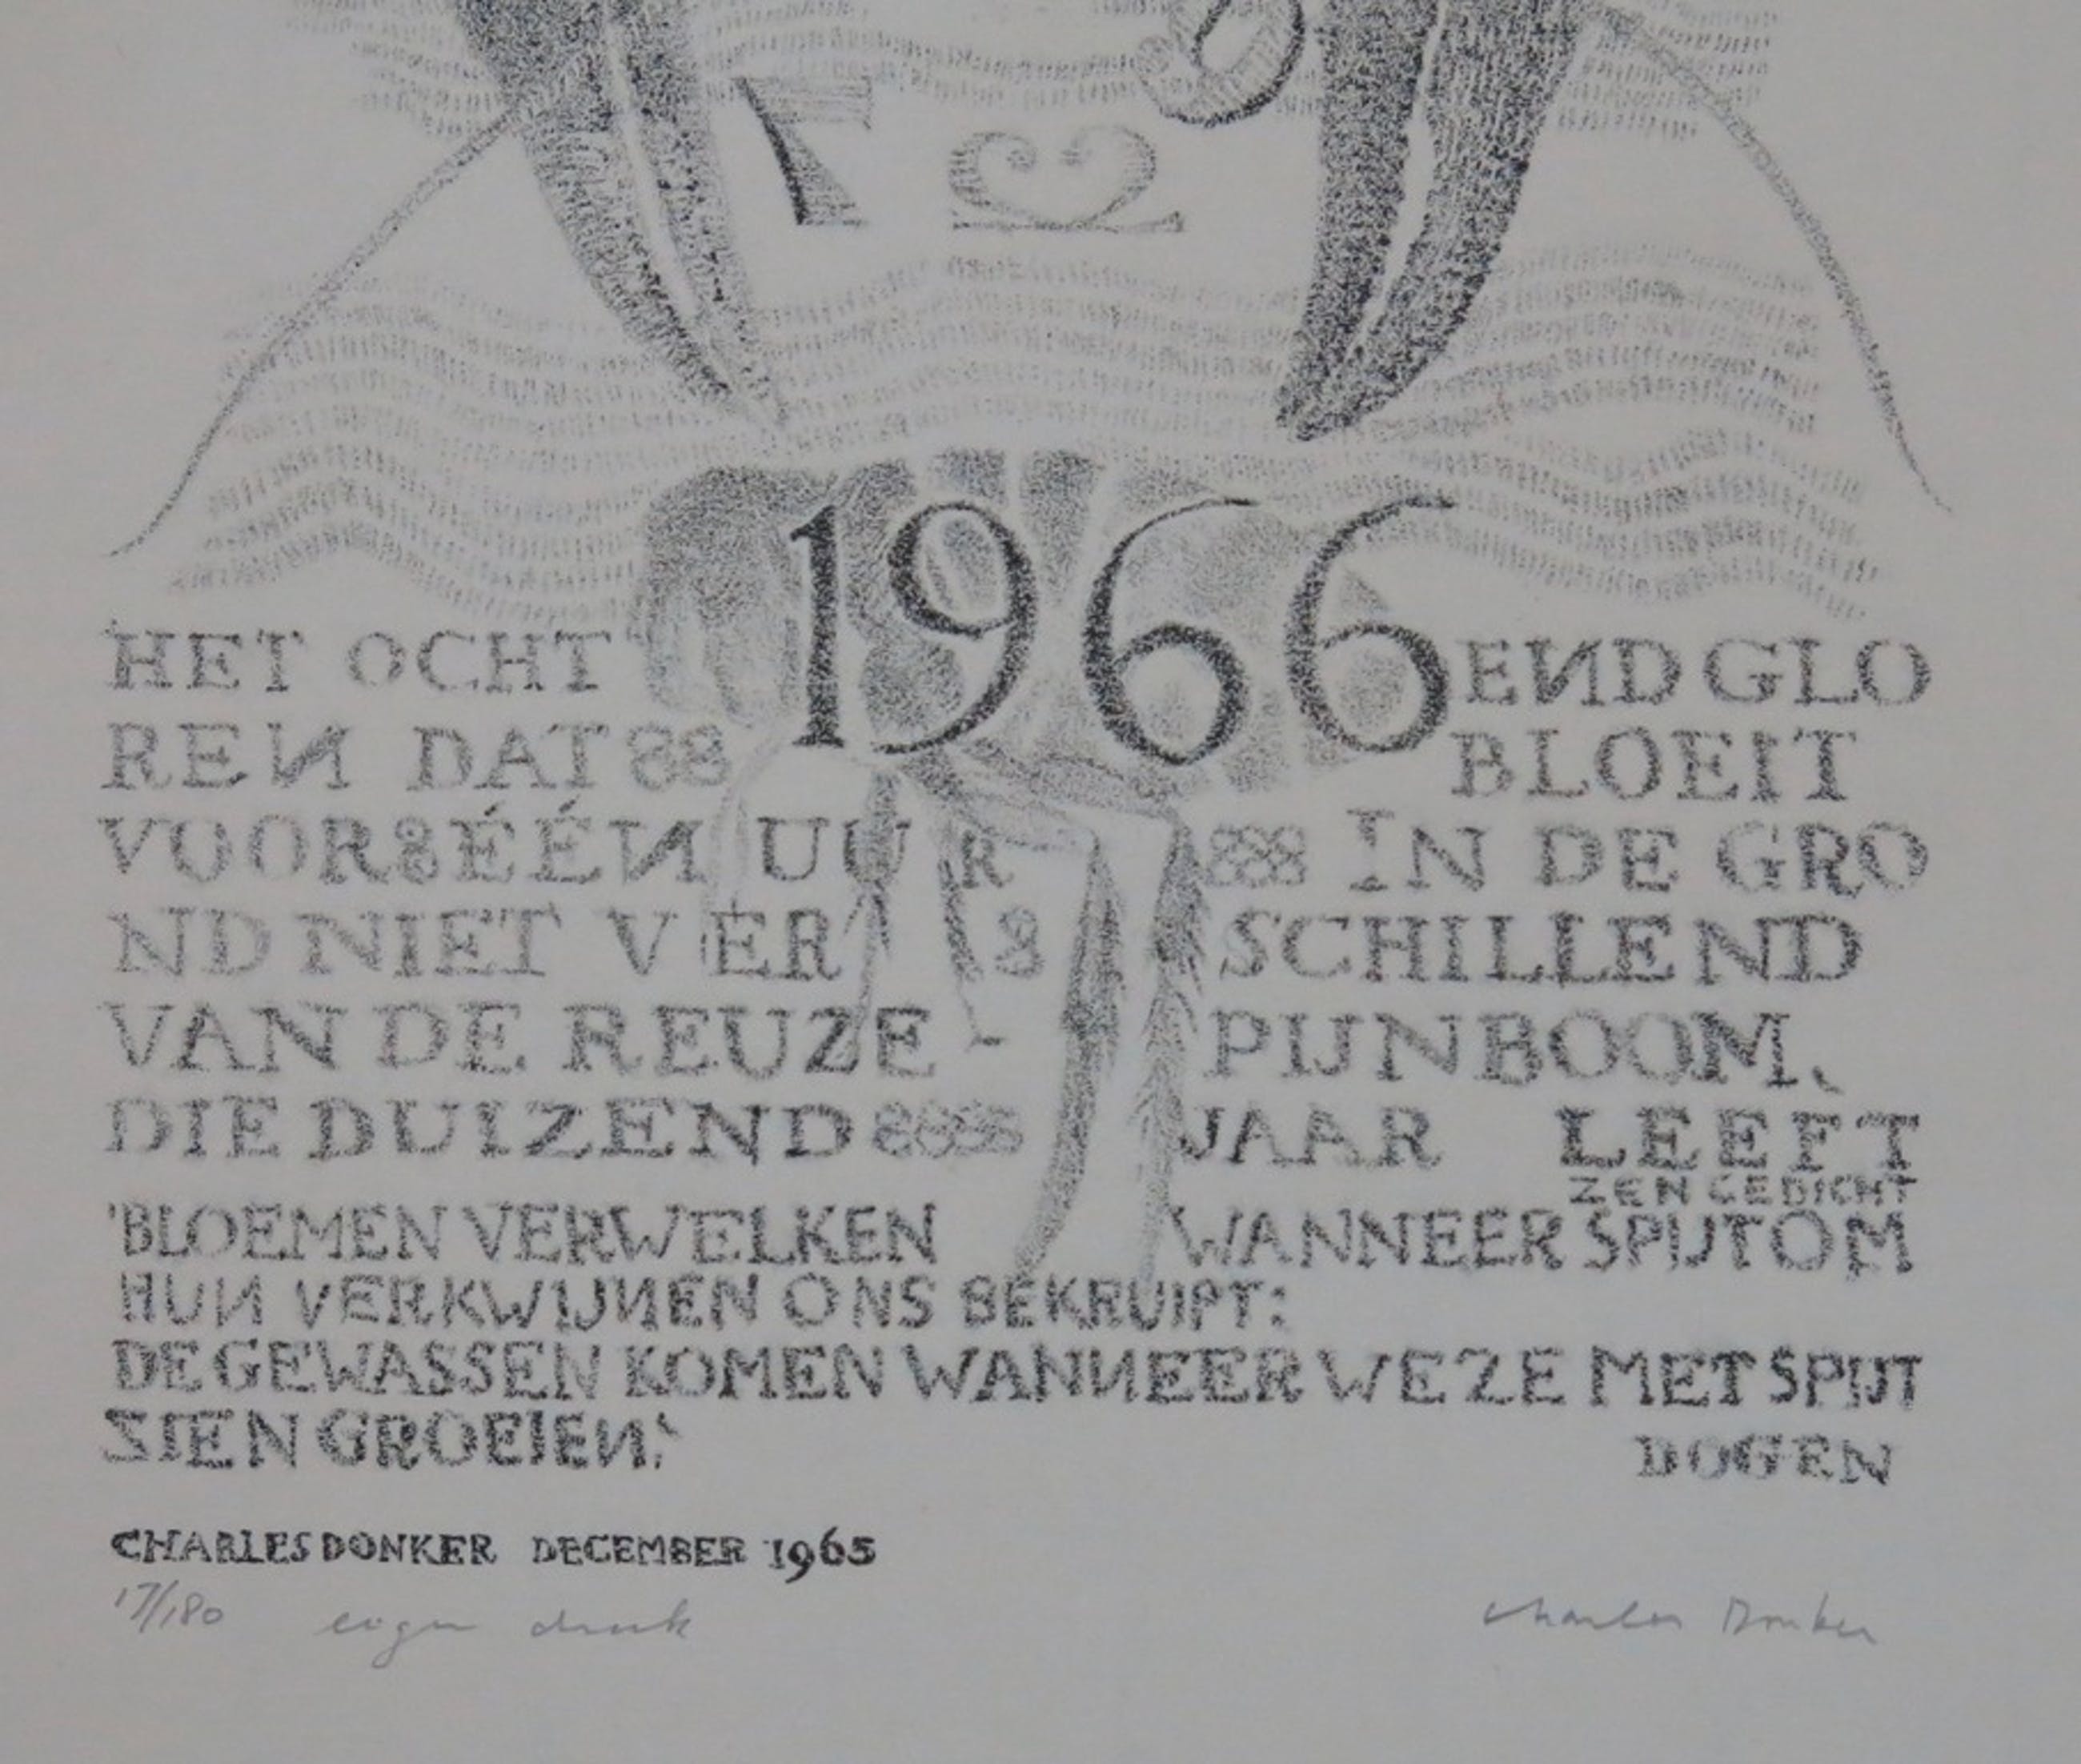 7 8
2
1966
HET OCHT END GLO
REN DAT 88 BLOEIT
VOOR8ÉÉN UUR 888 IN DE GRO
ND NIET VER 8 SCHILLEND
VAN DE REUZE - PIJNBOOM,
DIE DUIZEND 8888 JAAR LEEFT
ZEN GEDICHT
'BLOEMEN VERWELKEN WANNEER SPIJT OM
HUN VERKWIJNEN ONS BEKRUIPT:
DE GEWASSEN KOMEN WANNEER WE ZE MET SPIJT
ZIEN GROEIEN.'
DOGEN
CHARLES DONKER DECEMBER 1965
17/180 eigen druk Charles Donker